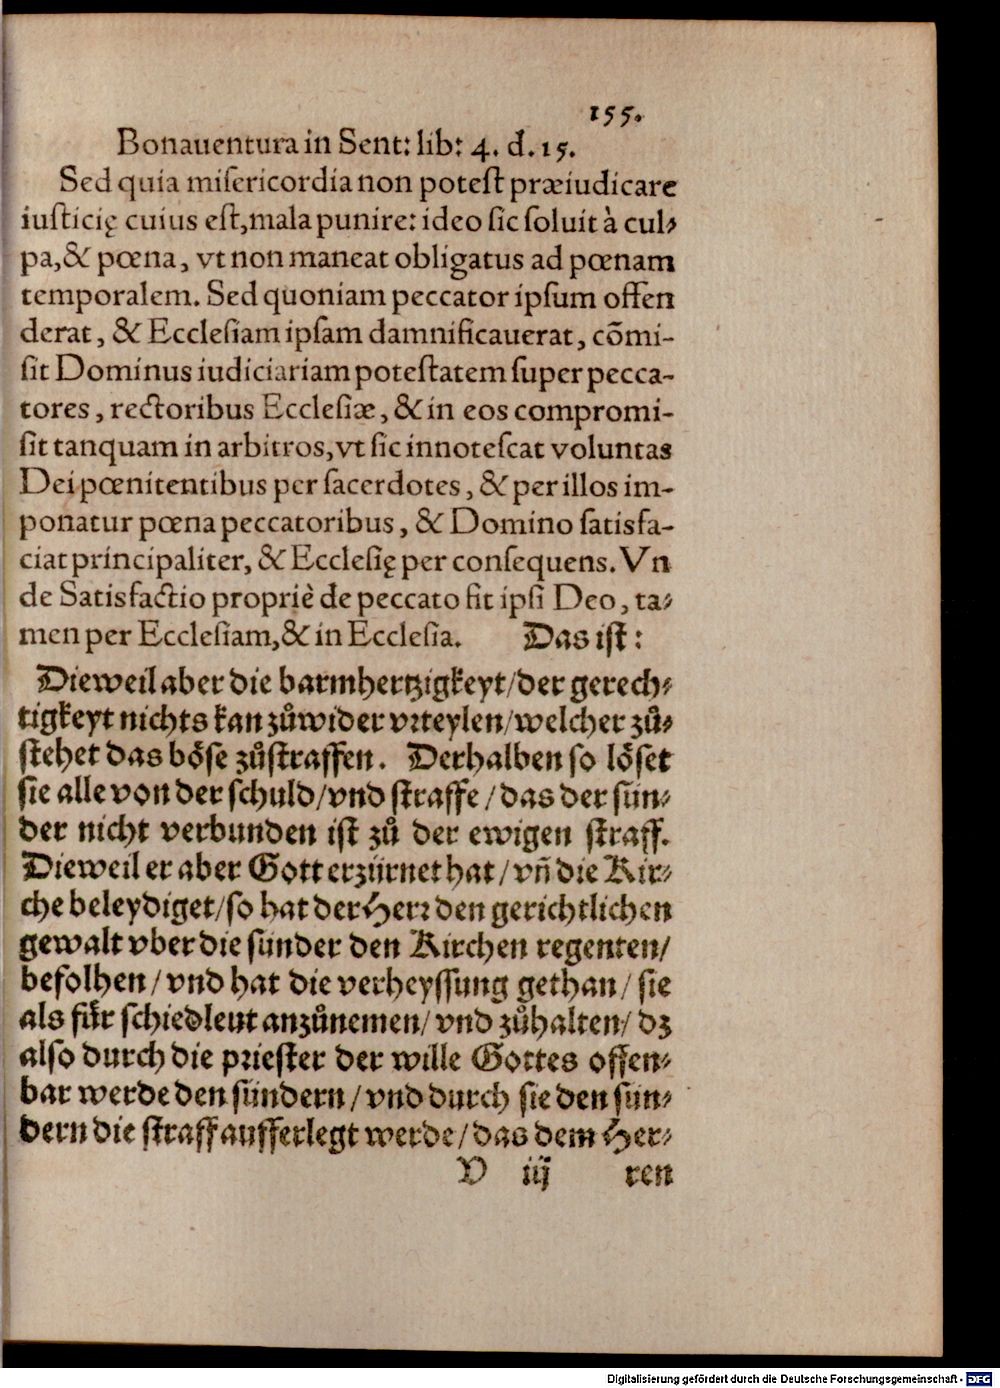 155.
Bonauentura in Sent: lib: 4. d. 15.
Sed quia misericordia non potest præiudicare
iusticię cuius est, mala punire: ideo sic soluit à cul⸗
pa, & pœna, vt non maneat obligatus ad pœnam
temporalem. Sed quoniam peccator ipsum offen
derat, & Ecclesiam ipsam damnificauerat, cõmi-
sit Dominus iudiciariam potestatem super pecca-
tores, rectoribus Ecclesiæ, & in eos compromi-
sit tanquam in arbitros, vt sic innotescat voluntas
Dei pœnitentibus per sacerdotes, & per illos im-
ponatur pœna peccatoribus, & Domino satisfa-
ciat principaliter, & Ecclesię per consequens. Vn
de Satisfactio propriè de peccato fit ipsi Deo, ta⸗
men per Ecclesiam, & in Ecclesia. Das ist:
Dieweil aber die barmhertzigkeyt/der gerech⸗
tigkeyt nichts kan zůwider vrteylen/welcher zů⸗
stehet das böse zůstraffen. Derhalben so löset
sie alle von der schuld/vnd straffe/das der sün⸗
der nicht verbunden ist zů der ewigen straff.
Dieweil er aber Gott erzürnet hat/vñ die Kir⸗
che beleydiget/so hat der Herr den gerichtlichen
gewalt vber die sünder den Kirchen regenten/
befolhen/vnd hat die verheyssung gethan/sie
als für schiedleut anzůnemen/vnd zůhalten/dz
also durch die priester der wille Gottes offen⸗
bar werde den sündern/vnd durch sie den sün⸗
dern die straff aufferlegt werde/das dem Her⸗
V iij ren
Digitalisierung gefördert durch die Deutsche Forschungsgemeinschaft - DFG